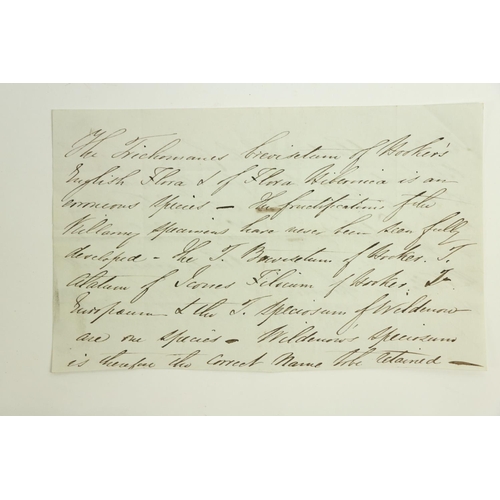 The Trichomanes brevisetum of Hooker's
English Flora & of Flora Hibernica is an
erroneous species — The fructifications of the
Killarny specimens have never been seen fully
developed — The T. Brevisetum of Hooker. T.
Alatum of Icones Filicum of Hooker. T.
Europaeum & the T. Speciosum of Willdenow
are one species — Willdenow's Speciosum
is therefore the correct Name to be retained —